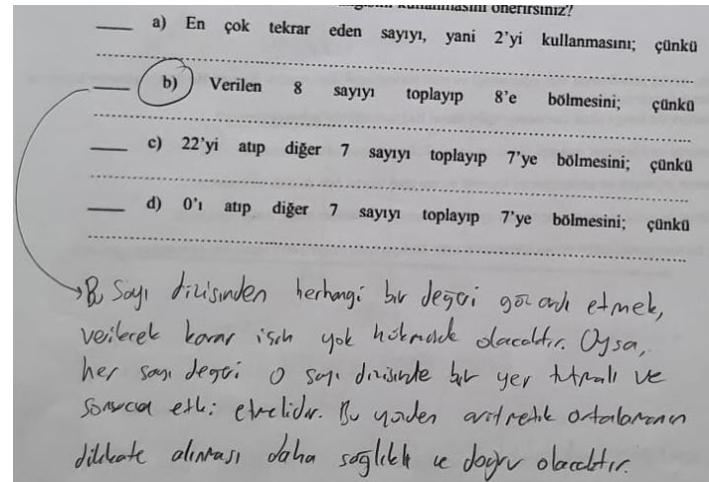 kullanmasını önerirsiniz?
____ a) En çok tekrar eden sayıyı, yani 2'yi kullanmasını; çünkü
____ b) Verilen 8 sayıyı toplayıp 8'e bölmesini; çünkü
____ c) 22'yi atıp diğer 7 sayıyı toplayıp 7'ye bölmesini; çünkü
____ d) 0'ı atıp diğer 7 sayıyı toplayıp 7'ye bölmesini; çünkü
B, Sayı dizisinden herhangi bir değeri göz ardı etmek,
verilecek karar için yok hükmünde olacaktır. Oysa,
her sayı değeri o sayı dizisinde bir yer tutmalı ve
sonuca etki etmelidir. Bu yüzden aritmetik ortalamanın
dikkate alınması daha sağlıklı ve doğru olacaktır.